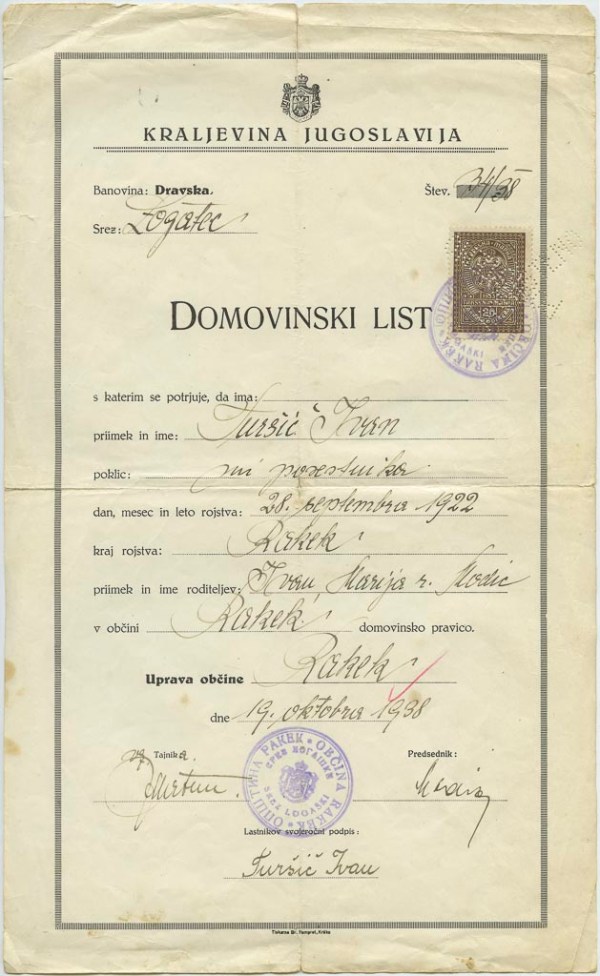 KRALJEVINA JUGOSLAVIJA
Banovina: Dravska.
Štev. 34/38
Srez: Logatec
DOMOVINSKI LIST
OBČINA RAKEK
s katerim se potrjuje, da ima:
priimek in ime: Turšič Ivan
poklic: pri posestnika
dan, mesec in leto rojstva: 28. septembra 1922
kraj rojstva: Rakek
priimek in ime roditeljev: Ivan, Marija r. Modic
v občini Rakek domovinsko pravico.
Uprava občine Rakek
dne 19. oktobra 1938
Tajnik:
Predsednik:
ОПШТИНА РАКЕК • OBČINA RAKEK
СРЕЗ ЛОГАШКИ
SREZ LOGAŠKI
Lastnikov svojeročni podpis:
Turšič Ivan